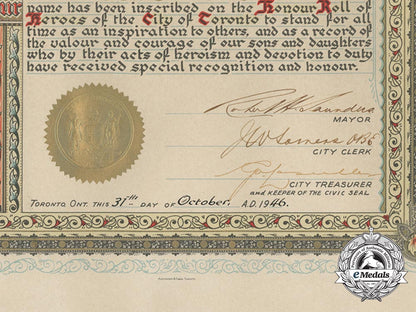 name has been inscribed on the Honour Roll
Heroes of the City of Toronto to stand for all
time as an inspiration to others, and as a record of
the valour and courage of our sons and daughters
who by their acts of heroism and devotion to duty
have received special recognition and honour.
Robert H. Saunders
MAYOR
J W Somers OBE
CITY CLERK
CITY TREASURER
AND KEEPER OF THE CIVIC SEAL
TORONTO, ONT. THIS 31st DAY OF October, A.D. 1946.
eMedals